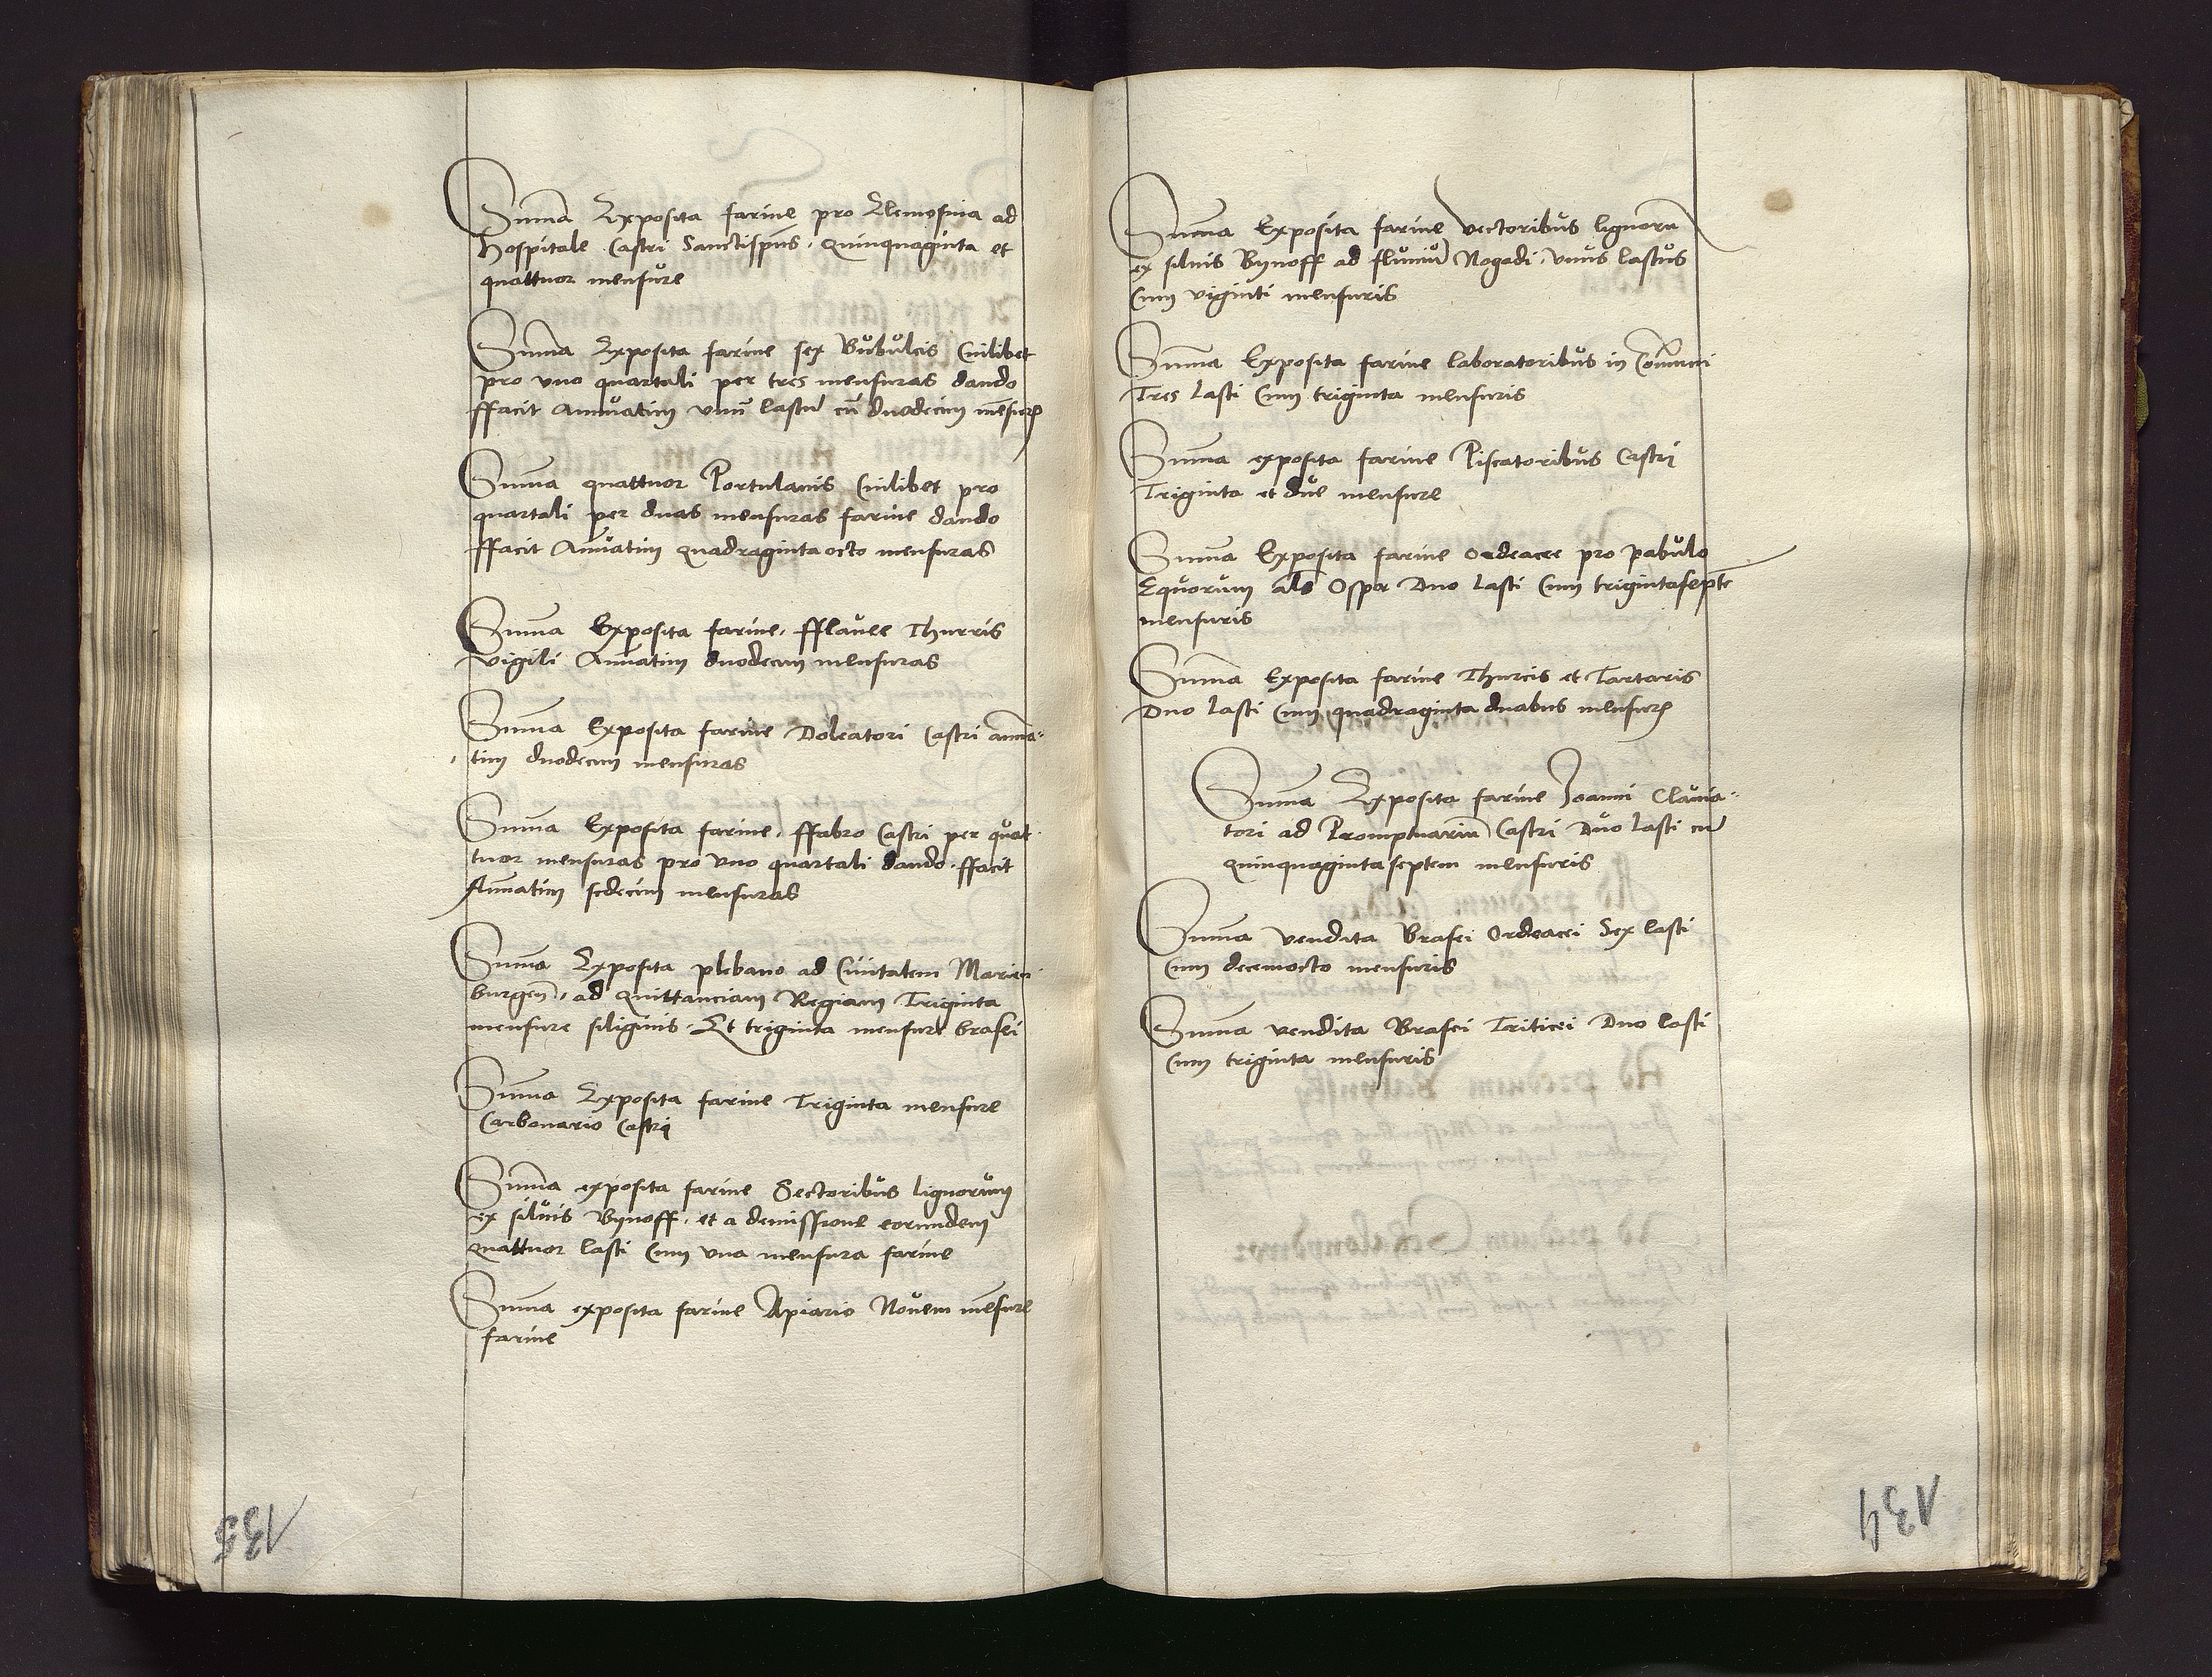 Summa Exposita farine pro Elemosina ad
hospitale Castri Sanctispūs. Quinquaginta et
quattuor mensure
Summa Exposita farine sex Bubulcis Cuilibet
pro uno quartali per tres mensuras dando
ffacit Annuatim unū lastū cū duodecim mēsur
Summa quattuor Portulanis Cuilibet pro
quartali per duas mensuras farine dando
ffacit Annuatim quadragintaocto mensuras
Summa Exposita farine, fflauee Thurris
vigili Annuatim duodecim mensuras
Summa Exposita farine Doleatori Castri annua-
tim duodecim mensuras
Summa Exposita farine, ffabro Castri per quat-
tuor mensuras pro Uno quartali dando. ffacit
Annuatim sedecim mensuras
Summa Exposita plebano ad Ciuitatem Marien-
burgeñ, ad Quittanciam Regiam Triginta
mensure siliginis. Et triginta mensure brasei
Summa Exposita farine Triginta mensure
Carbonario Castri
Summa exposita farine Sectoribus lignorum
ex siluis Bynoff, et a demissione eorundem
Quattuor lasti Cum una mensura farine
Summa exposita farine Apiario Nouem mēsure
farine
135
Summa Exposita farine vectoribus lignorū
ex siluis Bynoff ad fluuiū Nogadi, Unus lastus
Cum viginti mensuris
Summa Exposita farine laboratoribus in
Tres lasti Cum triginta mensuris
Summa exposita farine Piscatoribus Castri
Triginta et due mensure
Summa Exposita farine ordeacee pro pabulo
Equorum als Ospa Duo lasti Cum trigintaseptē
mensuris
Summa Exposita farine Thurcis et Tartaris
Duo lasti Cum quadraginta duabus mensur
Summa Exposita farine Joanni Clauia-
tori ad Promptuariū Castri Duo lasti cū
quinquagintaseptem mensuris
Summa vendita Brasei Ordeacei Sex lasti
Cum decemocto mensuris
Summa vendita Brasei Triticei Duo lasti
Cum triginta mensuris
134